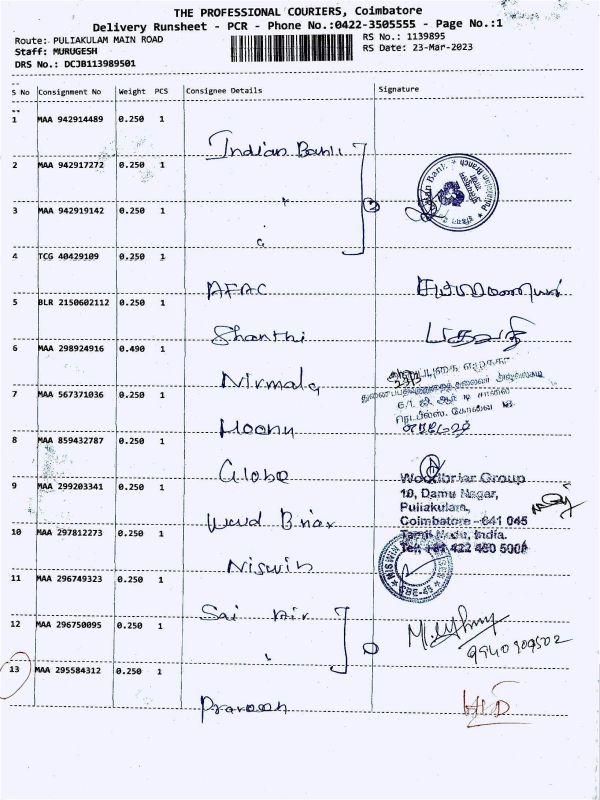 THE PROFESSIONAL COURIERS, Coimbatore
Delivery Runsheet - PCR - Phone No.:0422-3505555 - Page No.:1
Route: PULIAKULAM MAIN ROAD
RS No.: 1139895
Staff: MURUGESH
RS Date: 23-Mar-2023
DRS No.: DCJB113989501
S No Consignment No Weight PCS Consignee Details Signature
1 MAA 942914489 0.250 1
Indian Bank
2 MAA 942917272 0.250 1
"
3 MAA 942919142 0.250 1
"
3
4 TCG 40429109 0.250 1
AFAC
5 BLR 2150602112 0.250 1
Shanthi
6 MAA 298924916 0.490 1
Nirmala
7 MAA 567371036 0.250 1
8 MAA 859432787 0.250 1
Globe
9 MAA 299203341 0.250 1
Wood Briar
Woodbriar Group
10, Damu Nagar,
Puliakulam,
Coimbatore - 641 045
Tamil Nadu, India.
10 MAA 297812273 0.250 1
Niswin
NISWIN
CBE-45
11 MAA 296749323 0.250 1
Sai Air
12 MAA 296750095 0.250 1
"
13 MAA 295584312 0.250 1
Praveen